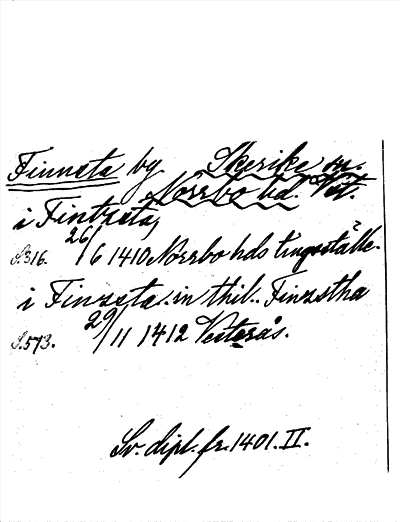 Finnsta by Skerike sn.
Norrbo hd. Vstt.
i Fintzsta
S.316. 26/6 1410 Norrbo hds tingsställe.
i Finzsta. in thil.. Finzstha
S.573. 29/11 1412 Vesterås.
Sv. dipl. fr. 1401. II.